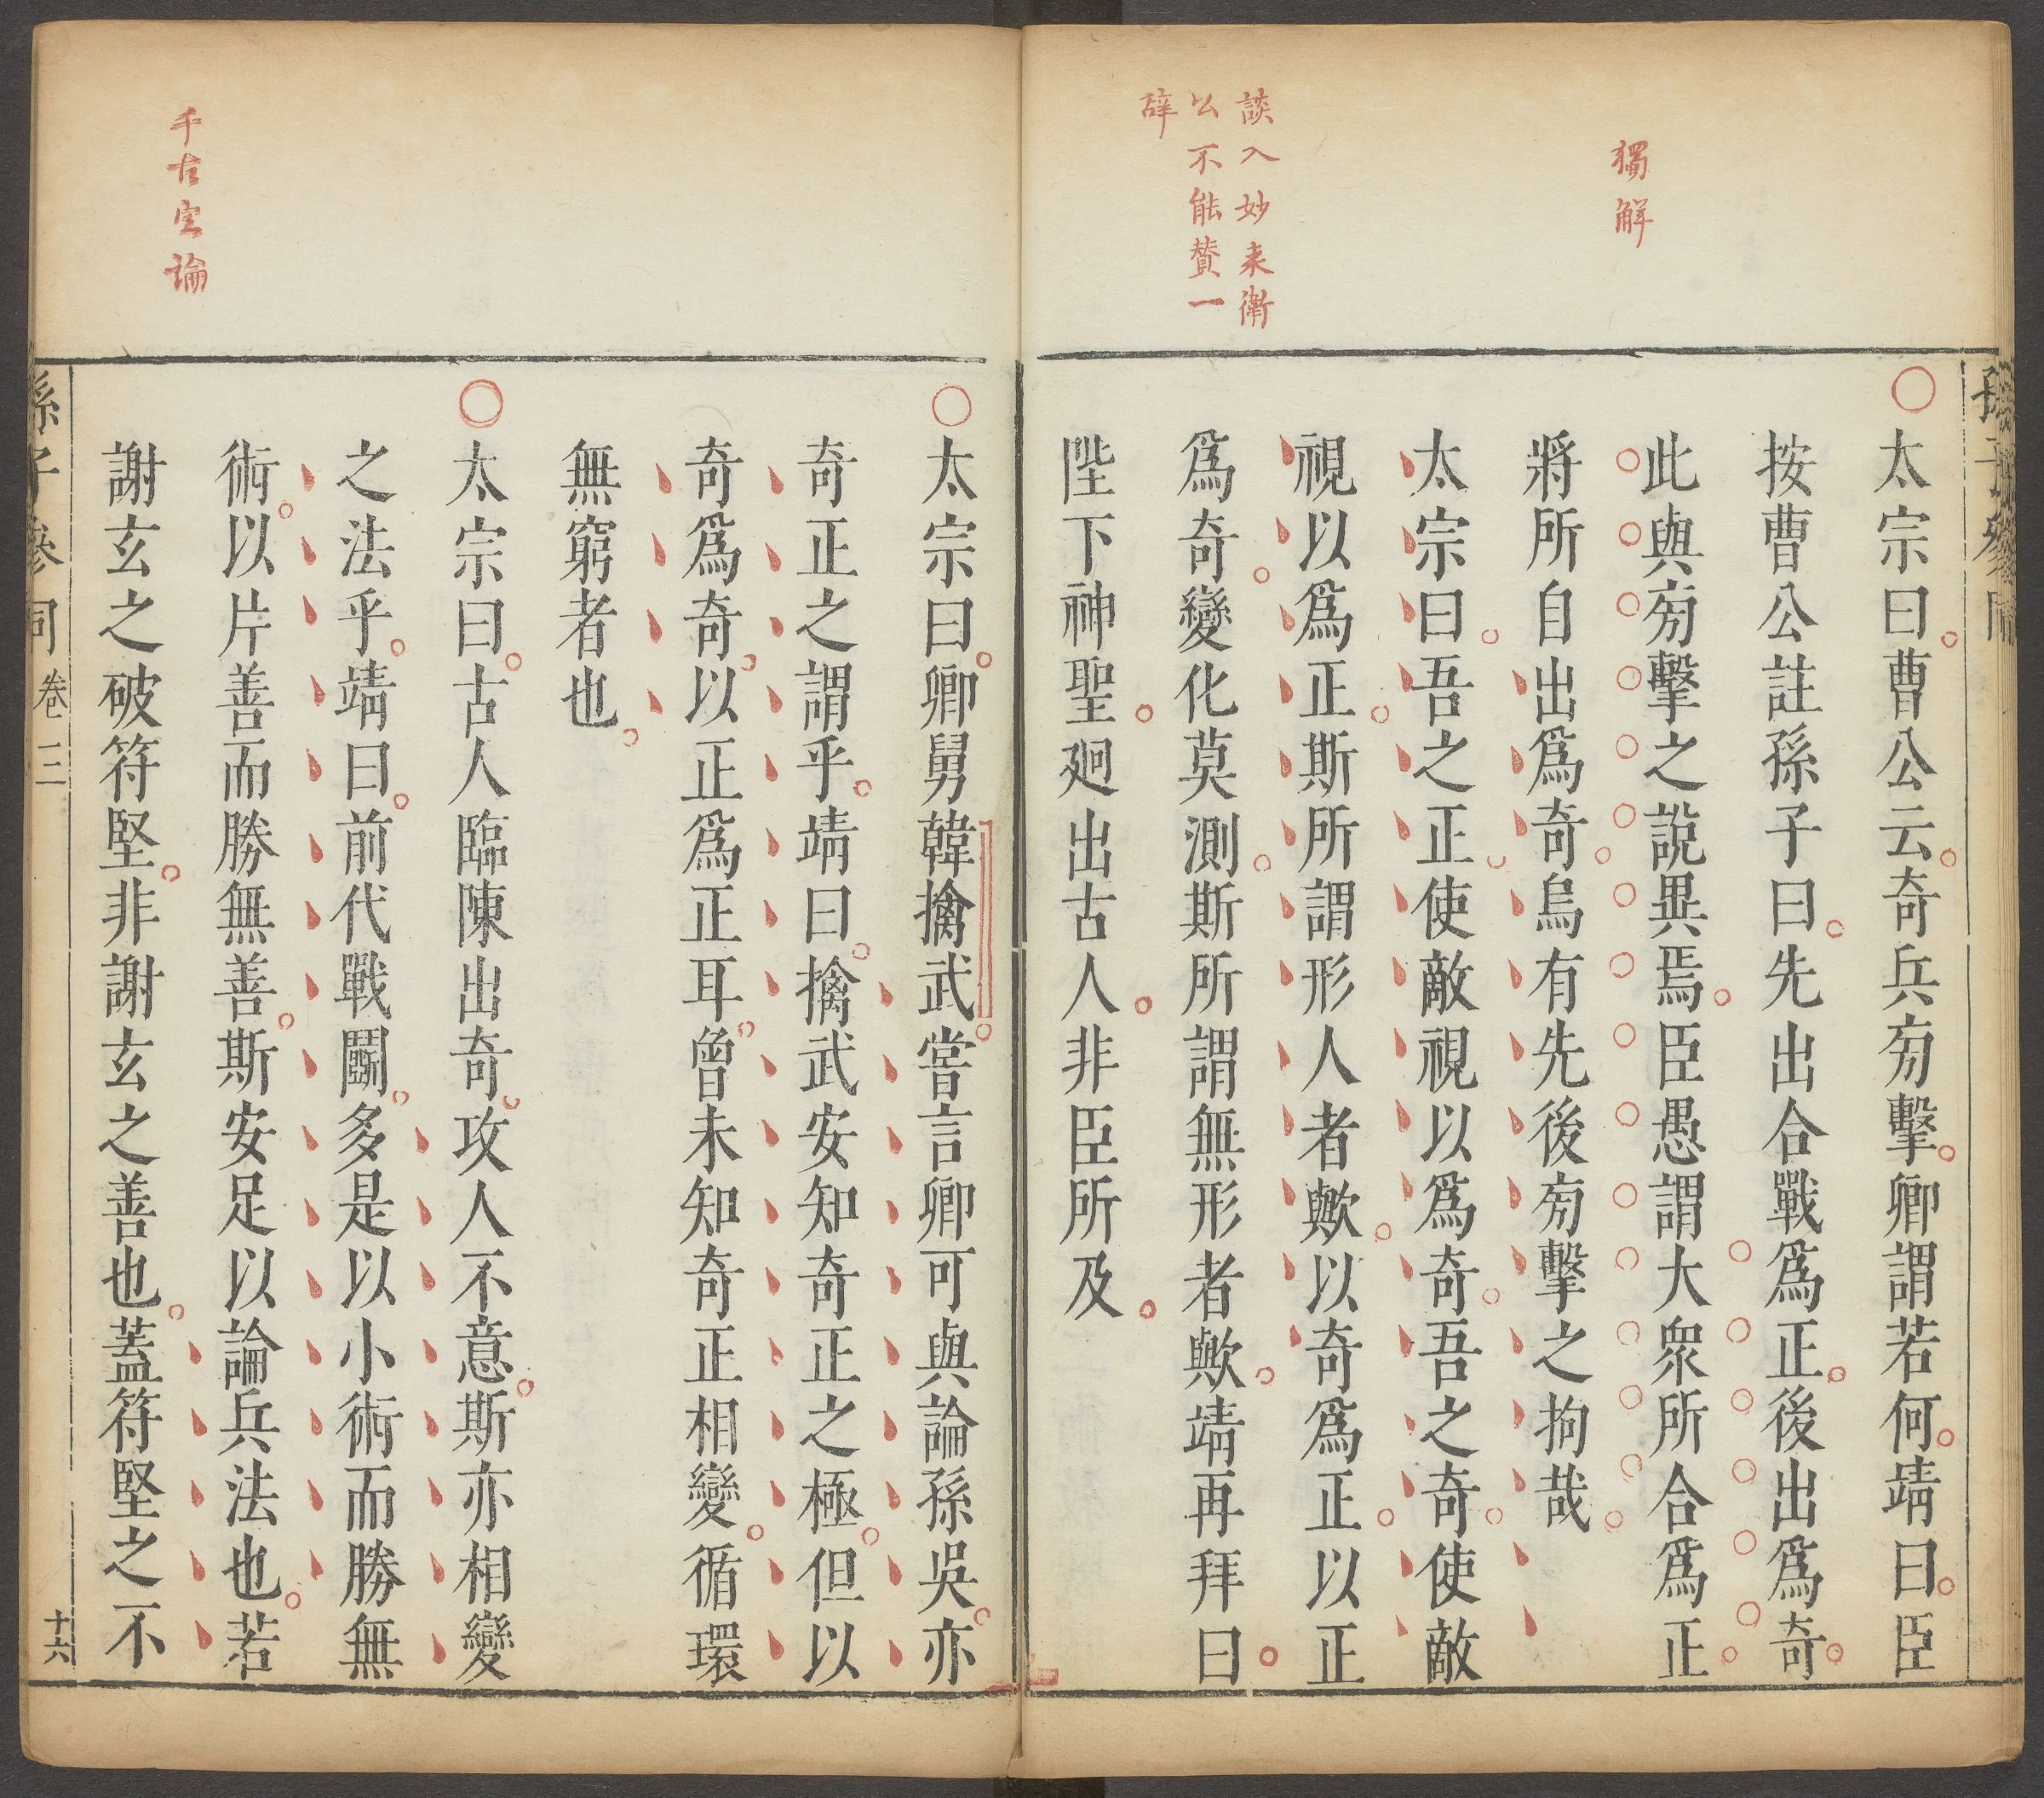 孫子參同
獨解
談入妙来衛
公不能賛一
辞
太宗曰曹公云奇兵㫄擊卿謂若何靖曰臣
按曹公註孫子曰先出合戰爲正後出爲奇
此與㫄擊之說異焉臣愚謂大衆所合爲正
將所自出爲奇烏有先後㫄擊之拘哉
太宗曰吾之正使敵視以爲奇吾之奇使敵
視以爲正斯所謂形人者歟以奇爲正以正
爲奇變化莫測斯所謂無形者歟靖再拜曰
陛下神聖廻出古人非臣所及
太宗曰卿舅韓擒武嘗言卿可與論孫吳亦
奇正之謂乎靖曰擒武安知奇正之極但以
奇爲奇以正爲正耳曾未知奇正相變循環
無窮者也
太宗曰古人臨陳出奇攻人不意斯亦相變
之法乎靖曰前代戰鬭多是以小術而勝無
術以片善而勝無善斯安足以論兵法也若
謝玄之破符堅非謝玄之善也蓋符堅之不
千古定論
孫子參同
卷三
十六